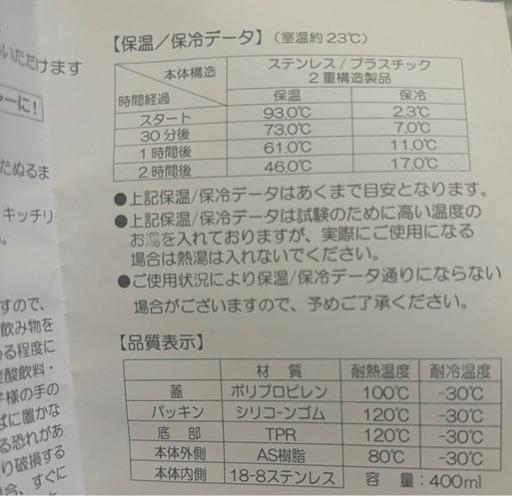 いただけます
ーに!
たぬるま
キッチリ
。
すので、
飲み物を
る程度に
酸飲料・
様の手の
ばに置かな
る恐れがあ
り破損する
合、すぐに
【保温／保冷データ】(室温約23℃)
本体構造 ステンレス/プラスチック
2重構造製品
時間経過 保温 保冷
スタート 93.0℃ 2.3℃
30分後 73.0℃ 7.0℃
1時間後 61.0℃ 11.0℃
2時間後 46.0℃ 17.0℃
●上記保温/保冷データはあくまで目安となります。
●上記保温/保冷データは試験のために高い温度の
お湯を入れておりますが、実際にご使用になる
場合は熱湯は入れないでください。
●ご使用状況により保温/保冷データ通りにならない
場合がございますので、予めご了承ください。
【品質表示】
材質 耐熱温度 耐冷温度
蓋 ポリプロピレン 100℃ -30℃
パッキン シリコーンゴム 120℃ -30℃
底部 TPR 120℃ -30℃
本体外側 AS樹脂 80℃ -30℃
本体内側 18-8ステンレス 容量:400ml